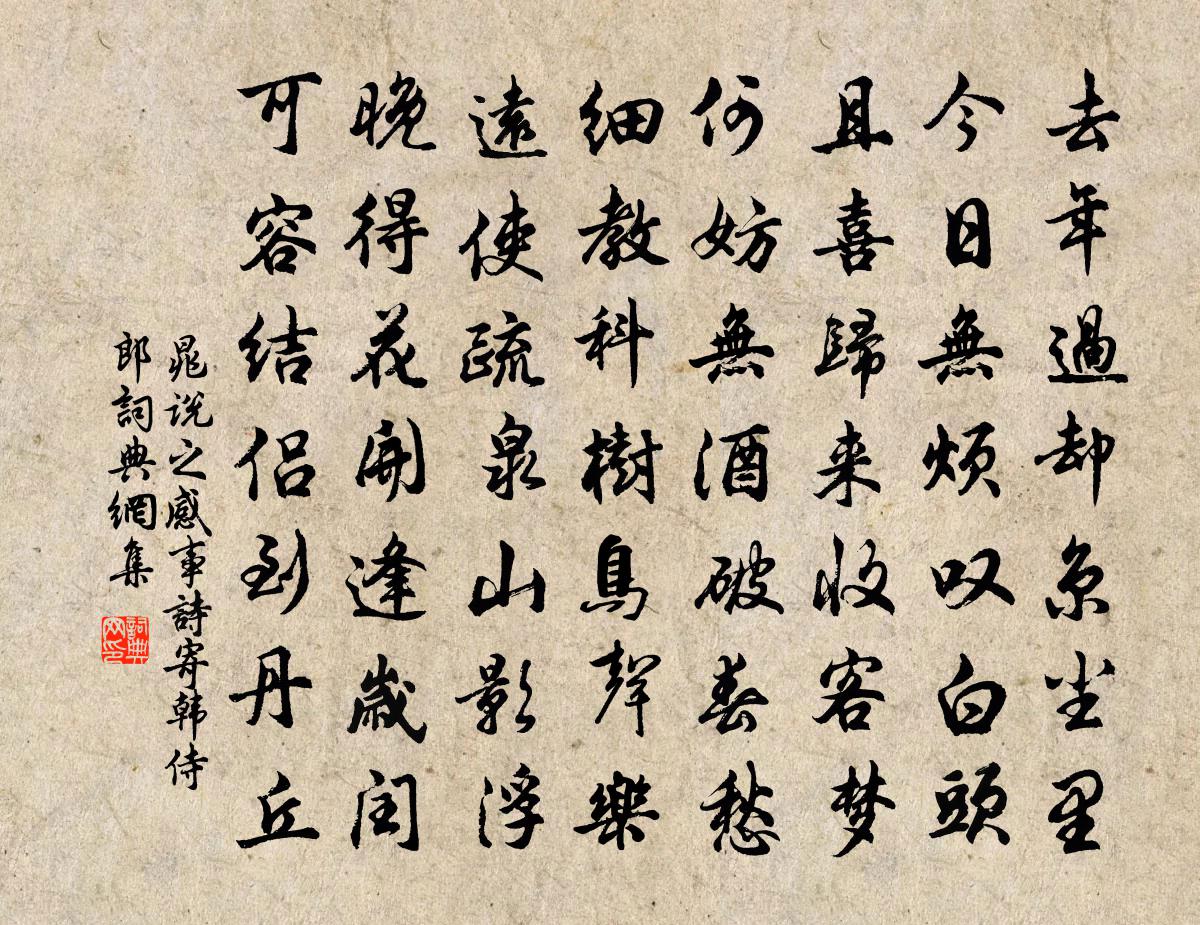 去年過却京尘里
今日無烦叹白頭
且喜歸来收客梦
何妨無酒破春愁
細教科樹鳥聲樂
遠使疏泉山影浮
晚得花開逢歲闰
可容结侣到丹丘
晁说之感事詩寄韩侍
郎詞典網集
詞典
网印